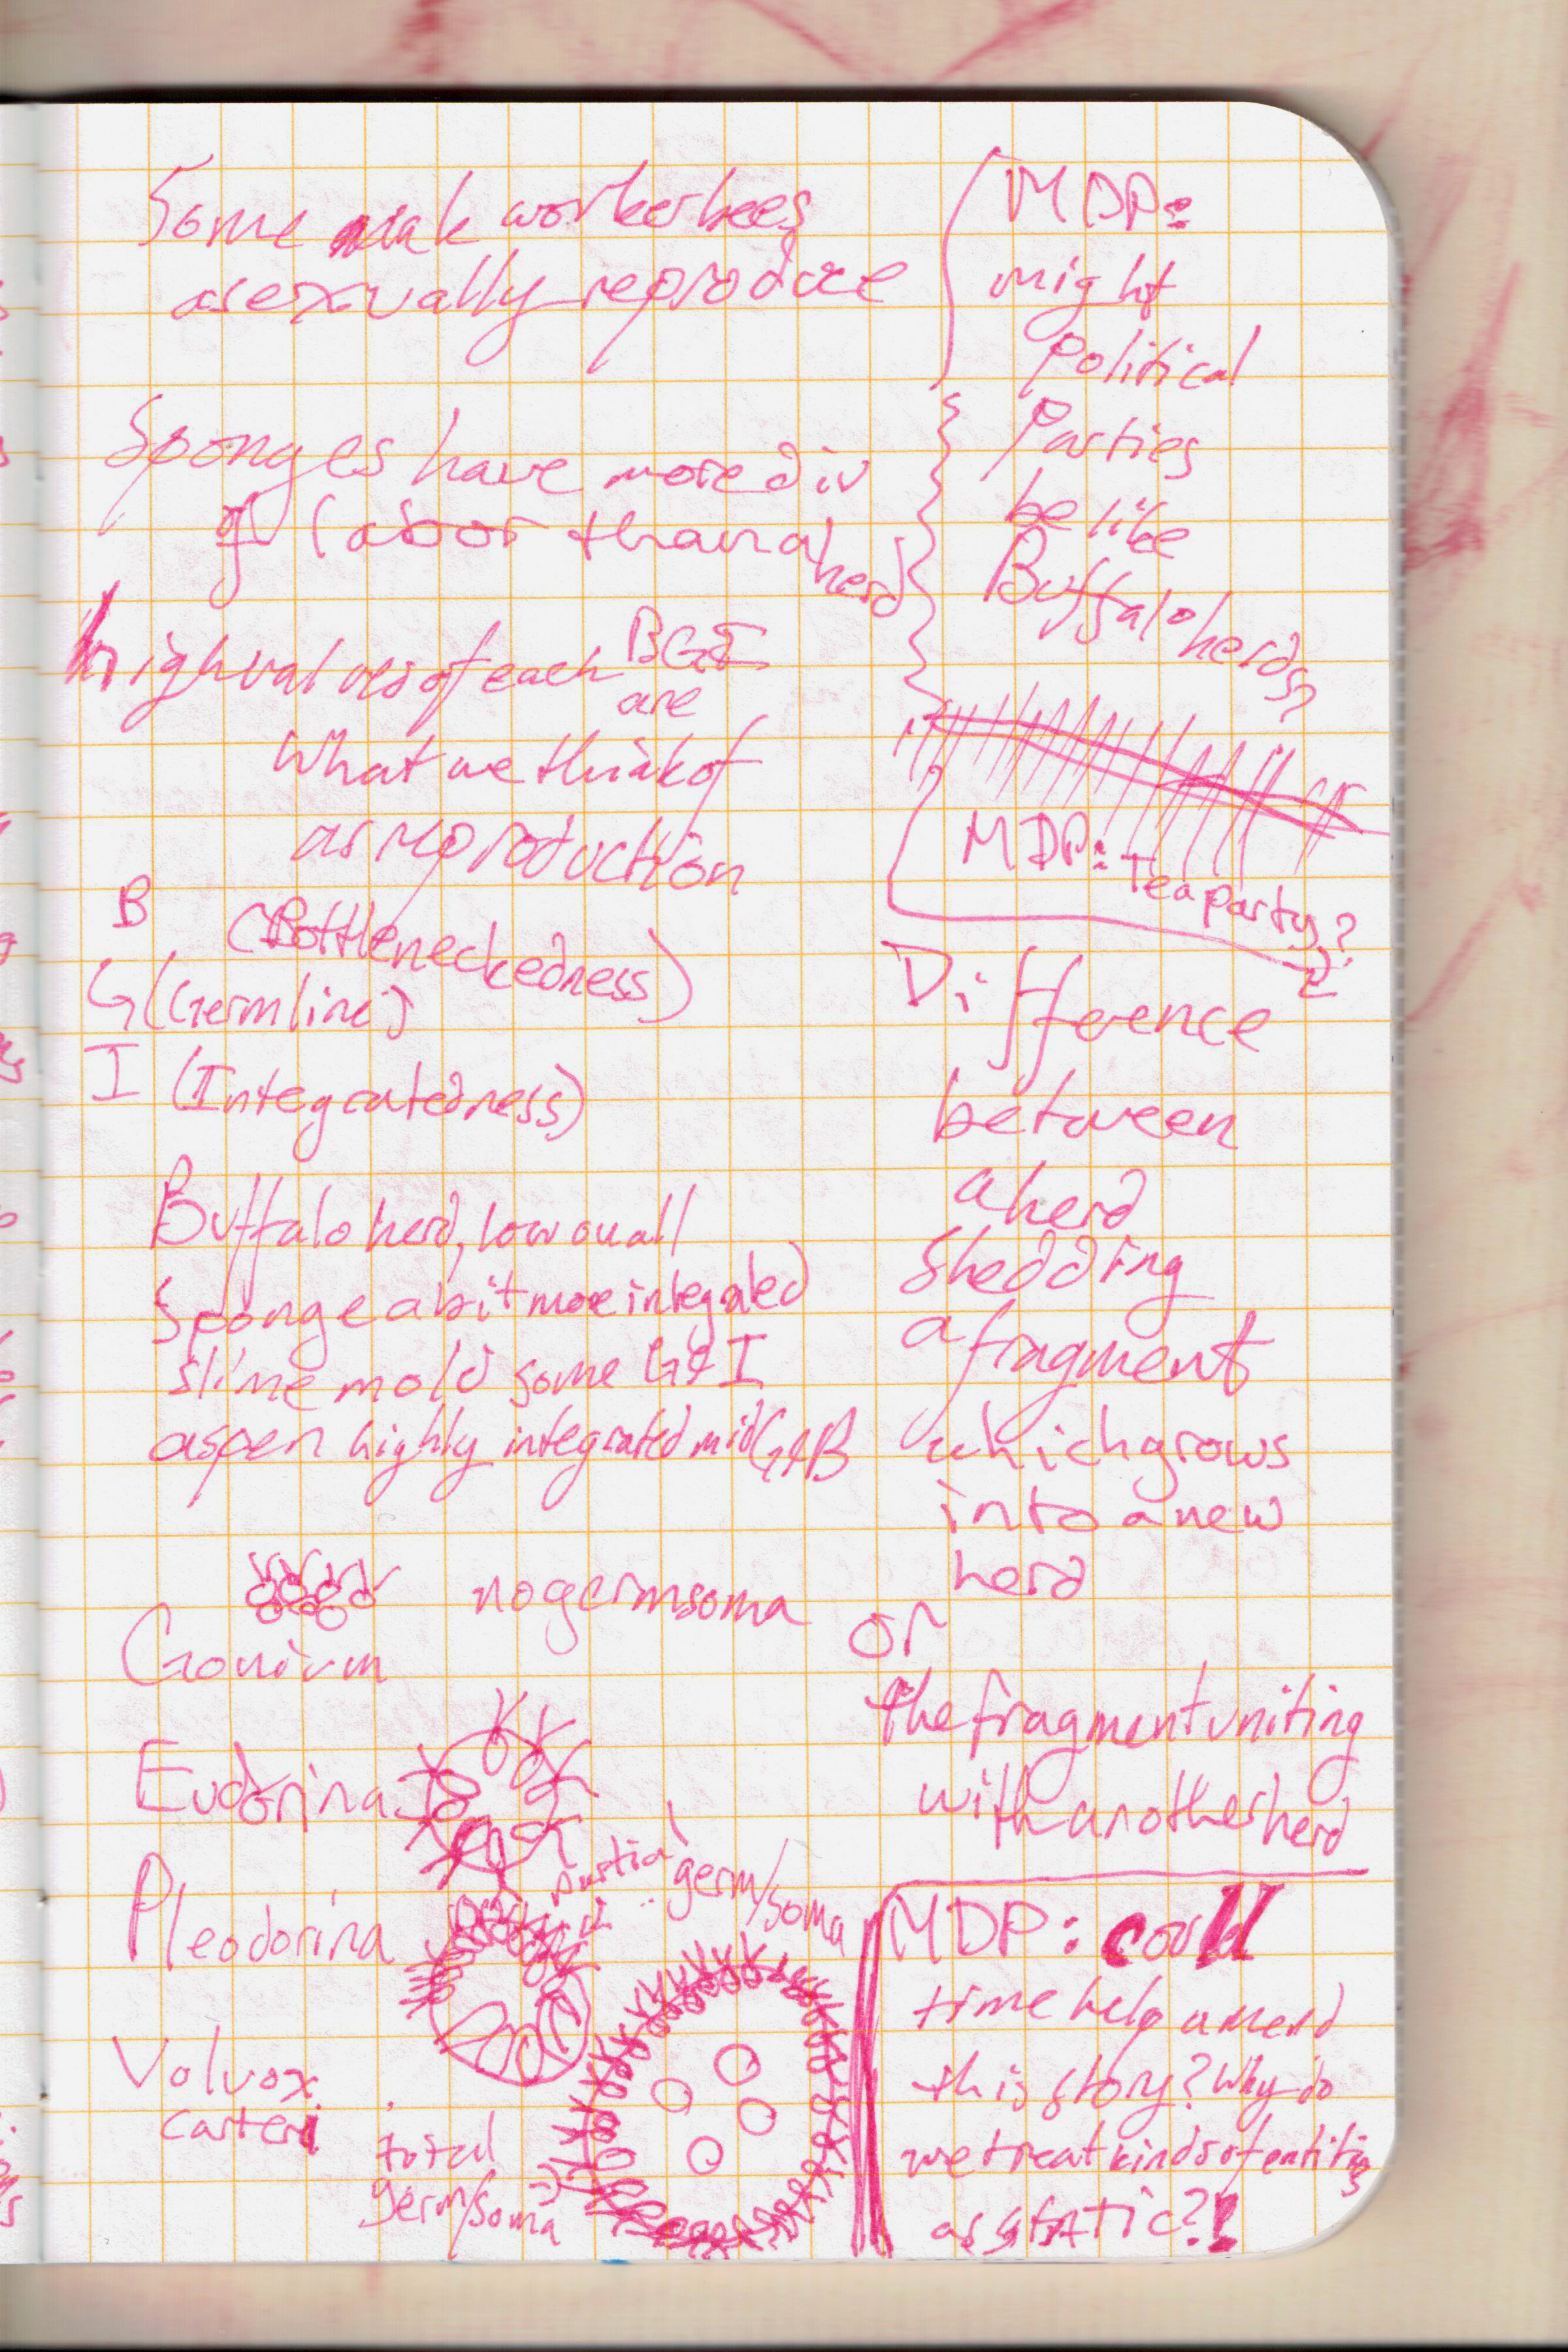 Some workerbees
asexually reproduce
Sponges have more div
of labor than a herd
high values of each BGI
are
what we think of
as reproduction
B (Bottleneckedness)
G (Germline)
I (Integratedness)
Buffalo herd, low on all
Sponge a bit more integrated
slime mold some G & I
aspen highly integrated mid G & B
no germ soma
Gonium
Eudorina
partial germ/soma
Pleodorina
Volvox
carteri
total
germ/soma
MDP:
might
Political
Parties
be like
Buffalo herds?
MDP: Tea party?
Difference
between
a herd
shedding
a fragment
which grows
into a new
herd
or
the fragment uniting
with another herd
MDP: could
time help amend
this story? Why do
we treat kinds of entities
as static?!